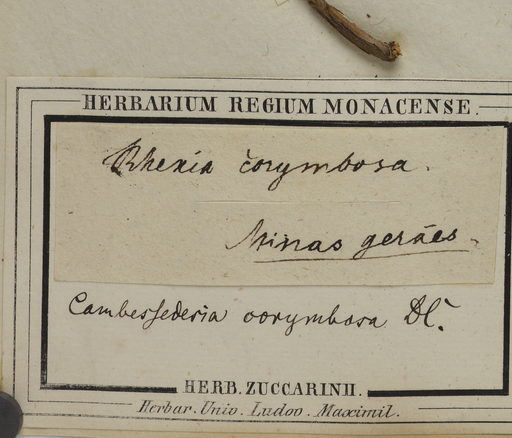 HERBARIUM REGIUM MONACENSE.
Rhexia corymbosa.
Minas gerães.
Cambessedesia corymbosa DC.
HERB. ZUCCARINII.
Herbar. Univ. Ludov. Maximil.